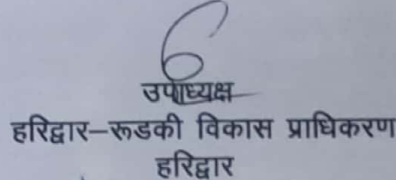 उपाध्यक्ष
हरिद्वार–रूडकी विकास प्राधिकरण
हरिद्वार